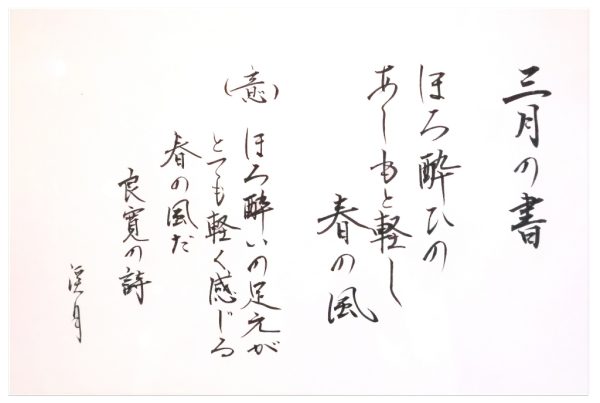 三月の書
ほろ酔ひの
あしもと軽し
春の風
(意) ほろ酔いの足元が
とても軽く感じる
春の風だ
良寛の詩